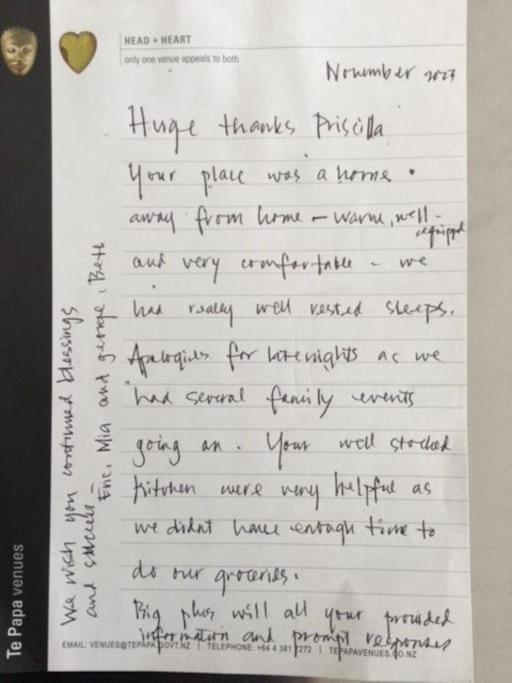 HEAD + HEART
only one venue appeals to both
November 2023
Huge thanks Priscilla
Your place was a home.
away from home – warm, well-
equipped
and very comfortable – we
had really well rested sleeps.
Apologies for late nights as we
had several family events
going on. Your well stocked
kitchen were very helpful as
we didnt have enough time to
do our groceries.
Big plus will all your provided
information and prompt responses
EMAIL: VENUES@TEPAPA.GOVT.NZ | TELEPHONE: +64 4 381 7272 | TEPAPAVENUES.CO.NZ
We wish you continued blessings
and success –
Eric, Mia and george, Beth
Te Papa venues